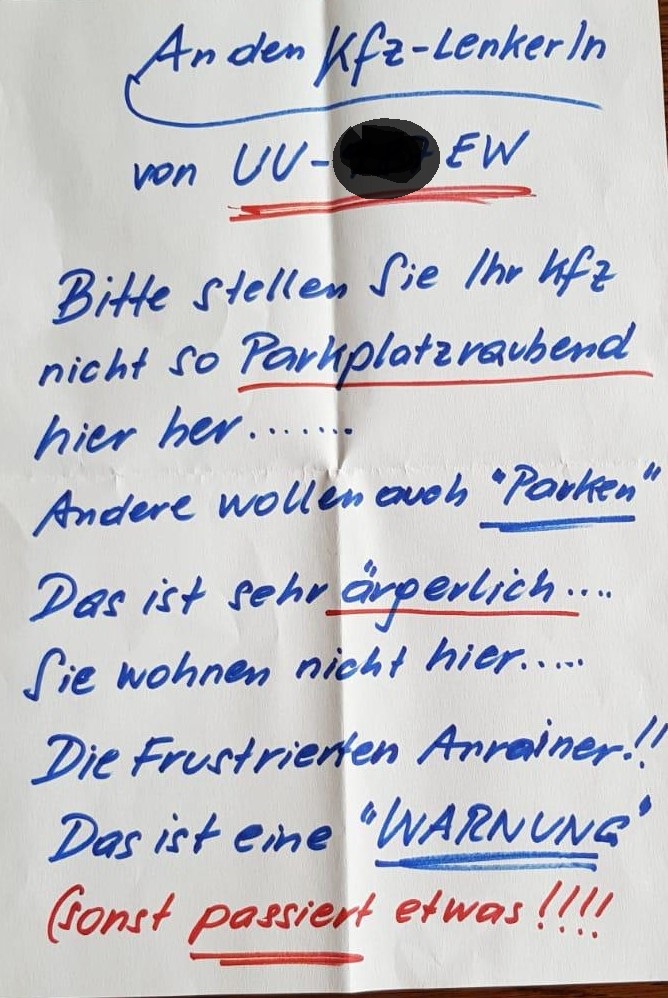 An den Kfz-LenkerIn
von UU- EW
Bitte stellen Sie Ihr Kfz
nicht so Parkplatzraubend
hier her.......
Andere wollen auch "Parken"
Das ist sehr ärgerlich....
Sie wohnen nicht hier.....
Die Frustrierten Anrainer!!
Das ist eine "WARNUNG"
(sonst passiert etwas!!!!